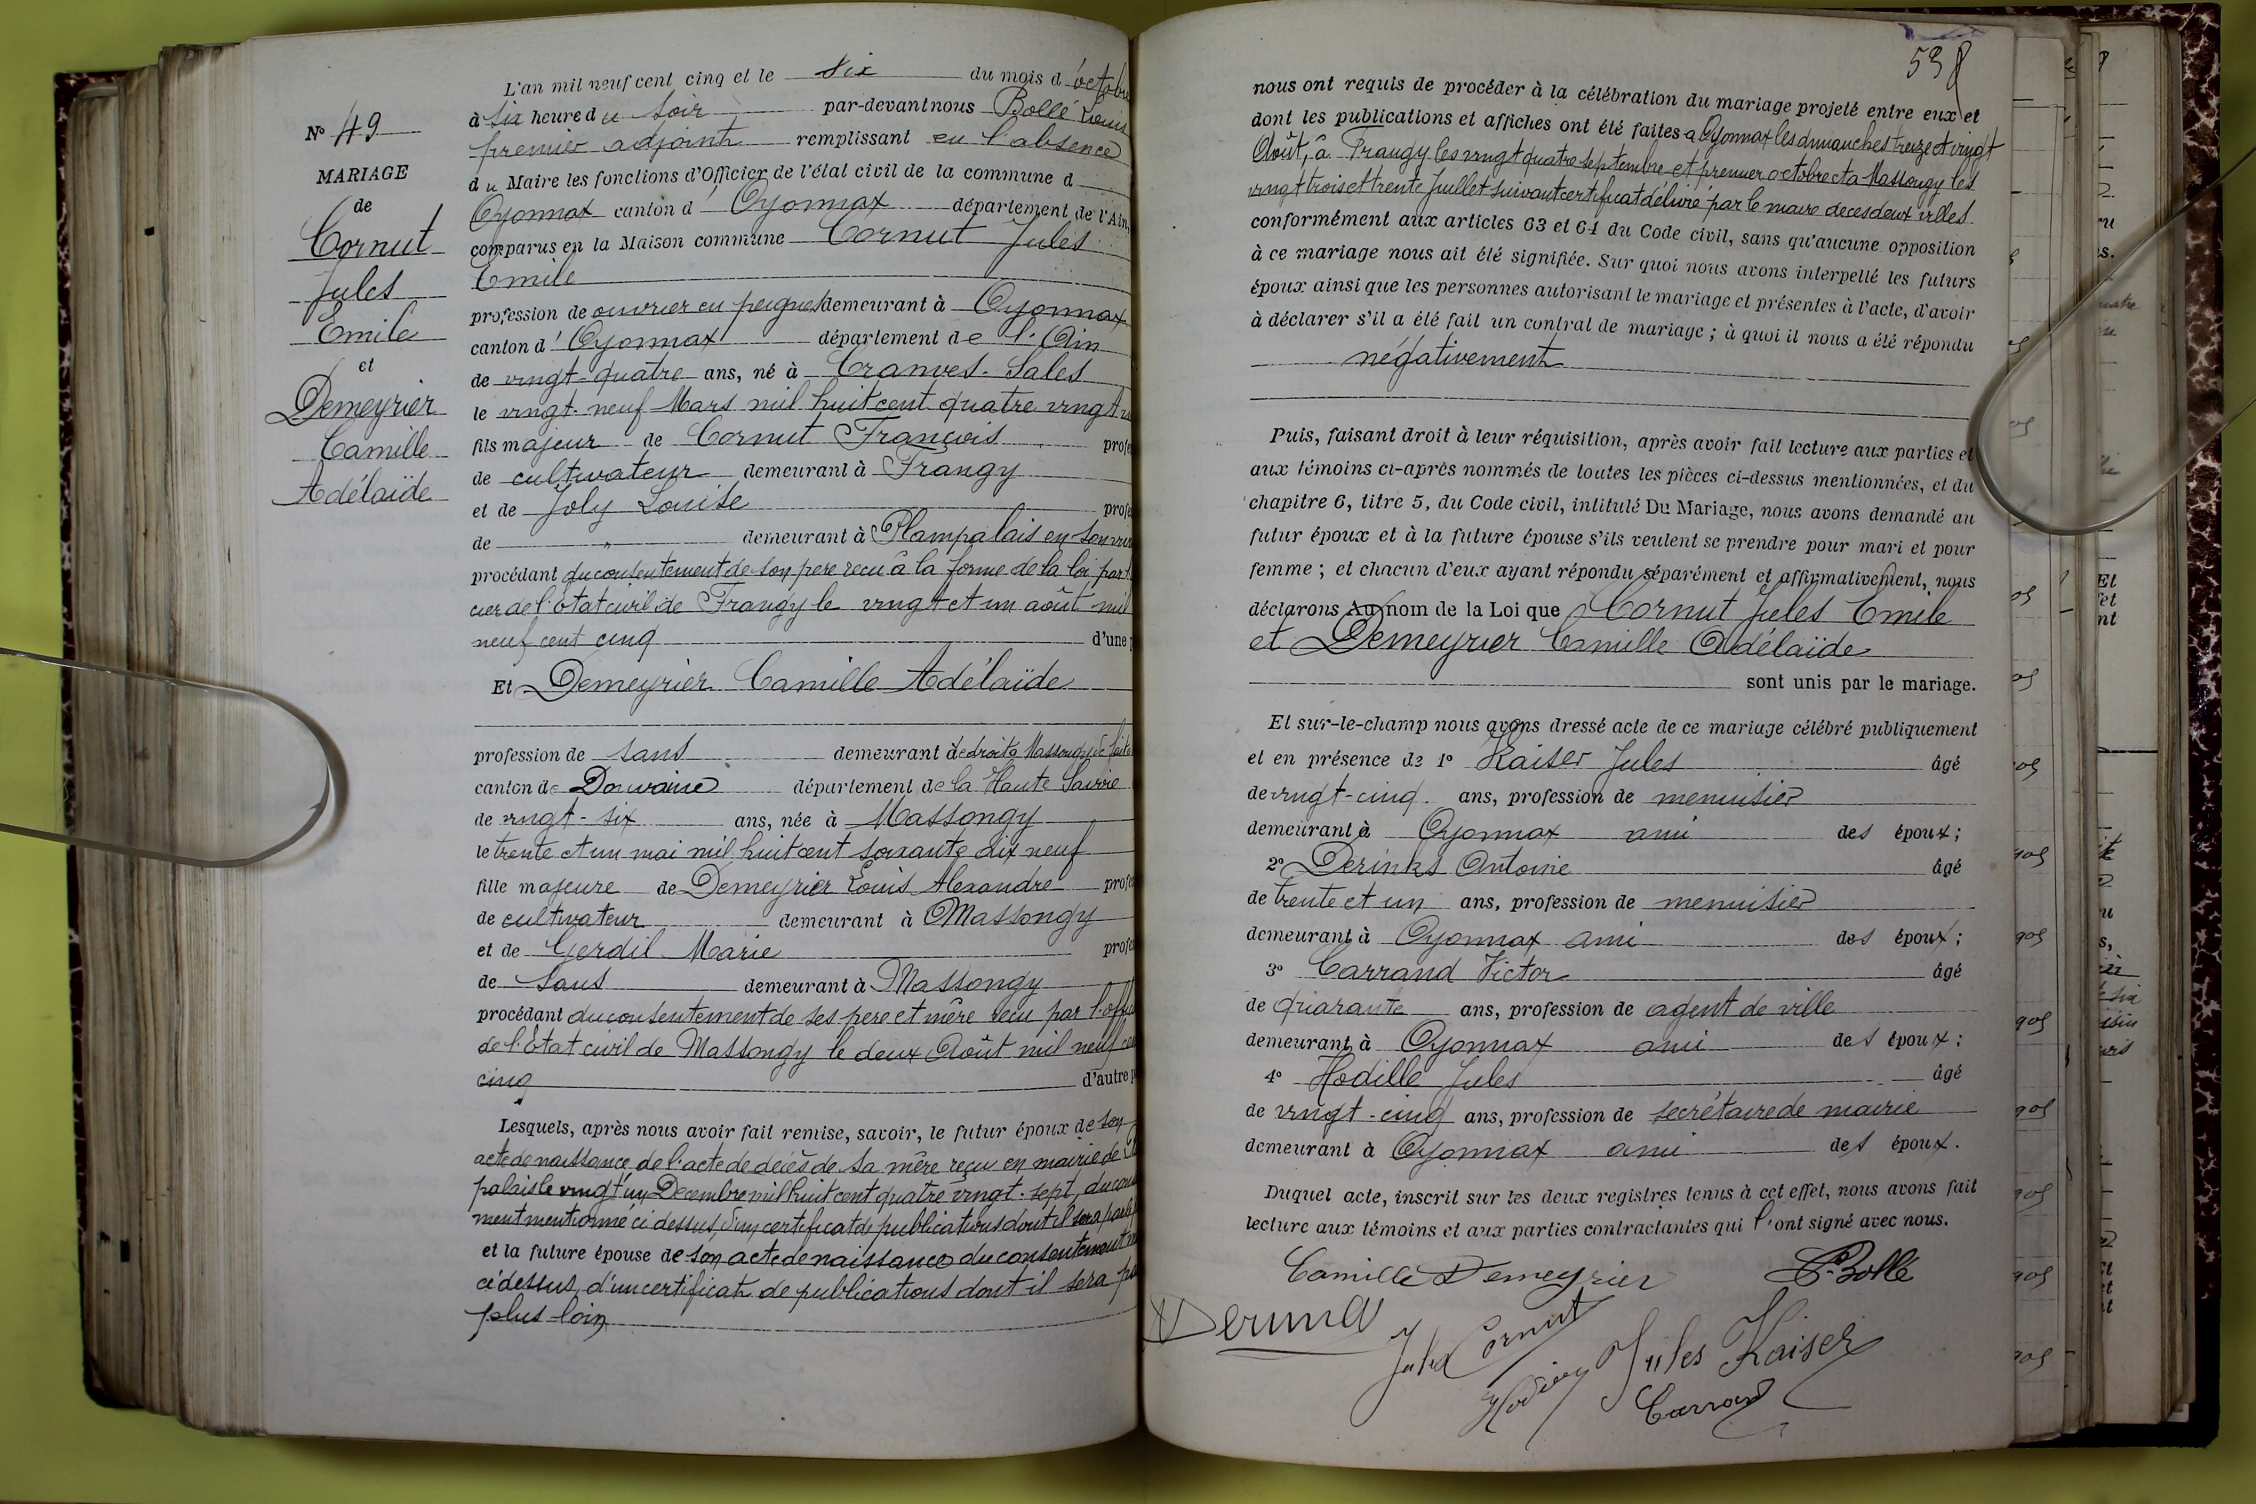 N° 49
MARIAGE
de
Cornut
Jules
Emile
et
Demeyrier
Camille
Adélaïde
L'an mil neuf cent cinq et le six du mois d'octobre
à six heure du soir par-devant nous Bollé Louis
premier adjoint remplissant en l'absence
du Maire les fonctions d'Officier de l'état civil de la commune d
Oyonnax canton d'Oyonnax département de l'Ain,
comparus en la Maison commune Cornut Jules
Emile
profession de ouvrier en peignes demeurant à Oyonnax
canton d'Oyonnax département de l'Ain
de vingt-quatre ans, né à Cranves-Sales
le vingt-neuf Mars mil huit cent quatre vingt
fils majeur de Cornut François profe
de cultivateur demeurant à Frangy
et de Joly Louise profe
de " demeurant à Plampalais en son viv
procédant du consentement de son père reçu à la forme de la loi par
cier de l'Etat civil de Frangy le vingt et un août mil
neuf cent cinq d'une p
Et Demeyrier Camille Adélaïde
profession de sans demeurant à de droit à Massongy de fait
canton de Douvaine département de la Haute Savoie
de vingt-six ans, née à Massongy
le trente et un mai mil huit cent soixante dix neuf
fille majeure de Demeyrier Louis Alexandre profe
de cultivateur demeurant à Massongy
et de Gerdil Marie profe
de Sans demeurant à Massongy
procédant du consentement de ses père et mère reçu par l'offi
de l'Etat civil de Massongy le deux Août mil neuf ce
cinq d'autre p
Lesquels, après nous avoir fait remise, savoir, le futur époux de son
acte de naissance, de l'acte de décès de sa mère reçu en mairie de
palais le vingt un Décembre mil huit cent quatre vingt-sept, du con
ment mentionné ci dessus, d'un certificat de publications dont il sera parlé
et la future épouse de son acte de naissance du consentement
ci dessus, d'un certificat de publications dont il sera pa
plus loin
538
nous ont requis de procéder à la célébration du mariage projeté entre eux et
dont les publications et affiches ont été faites à Oyonnax les dimanches treize et vingt
Août, à Frangy les vingt quatre septembre et premier octobre et à Massongy les
vingt trois et trente Juillet suivant certificat délivré par le maire de ces deux villes
conformément aux articles 63 et 64 du Code civil, sans qu'aucune opposition
à ce mariage nous ait été signifiée. Sur quoi nous avons interpellé les futurs
époux ainsi que les personnes autorisant le mariage et présentes à l'acte, d'avoir
à déclarer s'il a été fait un contrat de mariage ; à quoi il nous a été répondu
négativement
Puis, faisant droit à leur réquisition, après avoir fait lecture aux parties et
aux témoins ci-après nommés de toutes les pièces ci-dessus mentionnées, et du
chapitre 6, titre 5, du Code civil, intitulé Du Mariage, nous avons demandé au
futur époux et à la future épouse s'ils veulent se prendre pour mari et pour
femme ; et chacun d'eux ayant répondu séparément et affirmativement, nous
déclarons Au nom de la Loi que Cornut Jules Emile
et Demeyrier Camille Adélaïde
sont unis par le mariage.
Et sur-le-champ nous avons dressé acte de ce mariage célébré publiquement
et en présence de 1° Kaiser Jules âgé
de vingt-cinq ans, profession de menuisier
demeurant à Oyonnax ami des époux ;
2° Derinks Antoine âgé
de trente et un ans, profession de menuisier
demeurant à Oyonnax ami des époux ;
3° Carrand Victor âgé
de quarante ans, profession de agent de ville
demeurant à Oyonnax ami des époux ;
4° Hodille Jules âgé
de vingt-cinq ans, profession de secrétaire de mairie
demeurant à Oyonnax ami des époux.
Duquel acte, inscrit sur les deux registres tenus à cet effet, nous avons fait
lecture aux témoins et aux parties contractantes qui l'ont signé avec nous.
Camille Demeyrier L. Bollé
Jules Cornut
Jules Kaiser
Carrand